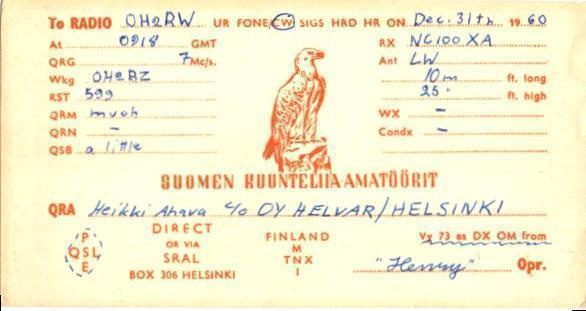 To RADIO OH2RW UR FONE/CW SIGS HRD HR ON Dec. 31th 1960
At 0918 GMT RX NC100XA
QRG 7Mc/s. Ant LW
Wkg OH2BZ 10m ft. long
RST 599 25" ft. high
QRM much WX –
QRN – Condx –
QSB a little
SUOMEN KUUNTELIJA-AMATÖÖRIT
QRA Heikki Ahava c/o OY HELVAR/HELSINKI
PSE QSL DIRECT OR VIA SRAL BOX 306 HELSINKI
FINLAND
M
TNX
I
Vy 73 es DX OM from
"Henry" Opr.